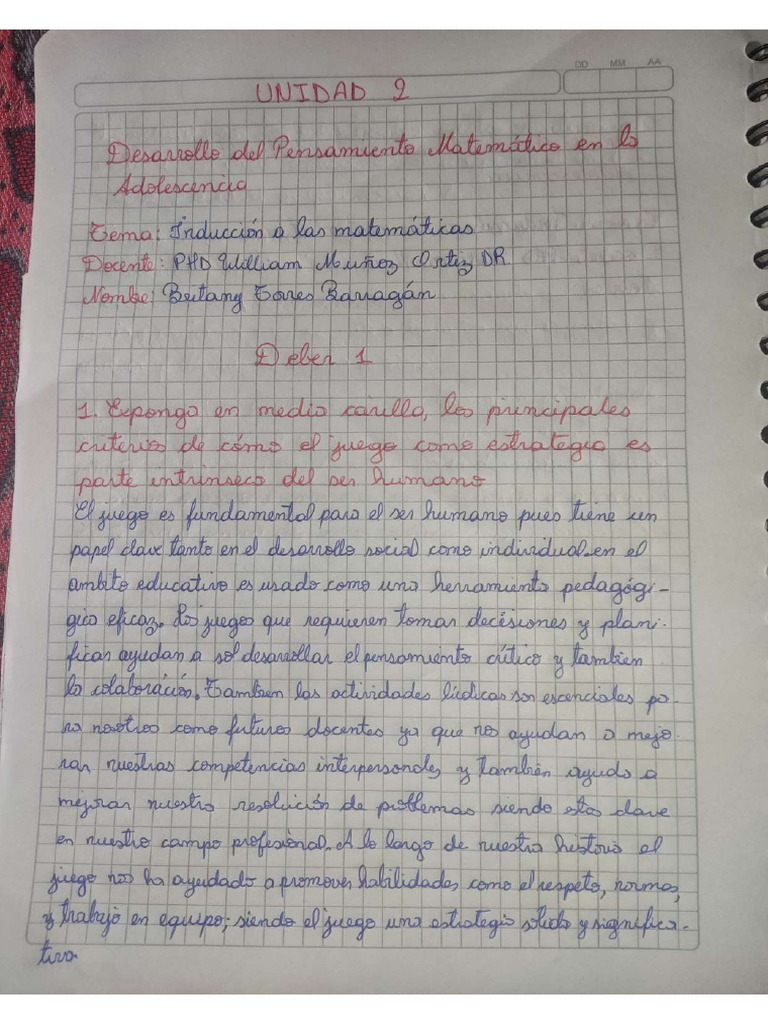 DD MM AA
UNIDAD 2
Desarrollo del Pensamiento Matemático en la
Adolescencia
Tema: Inducción a las matemáticas
Docente: PHD William Muñoz Ortiz DR.
Nombre: Britany Torres Barragán
Deber 1
1. Expongo en media carilla, los principales
criterios de cómo el juego como estrategia es
parte intrinseca del ser humano
El juego es fundamental para el ser humano pues tiene un
papel clave tanto en el desarrollo social como individual. en el
ambito educativo es usado como una herramienta pedagógi-
gica eficaz. Los juegos que requieren tomar decisiones y plani-
ficar ayudan a sol desarrollar el pensamiento crítico y tambien
la colaboración. Tambien las actividades lúdicas son escenciales pa-
ra nosotros como futuros docentes ya que nos ayudan a mejo
rar nuestras competencias interpersonales y también ayuda a
mejorar nuestra resolución de problemas siendo estas clave
en nuestro campo profesional. A lo largo de nuestra historia el
juego nos ha ayudado a promover habilidades como el respeto, normas,
y trabajo en equipo; siendo el juego una estrategia solida y significa-
tiva.